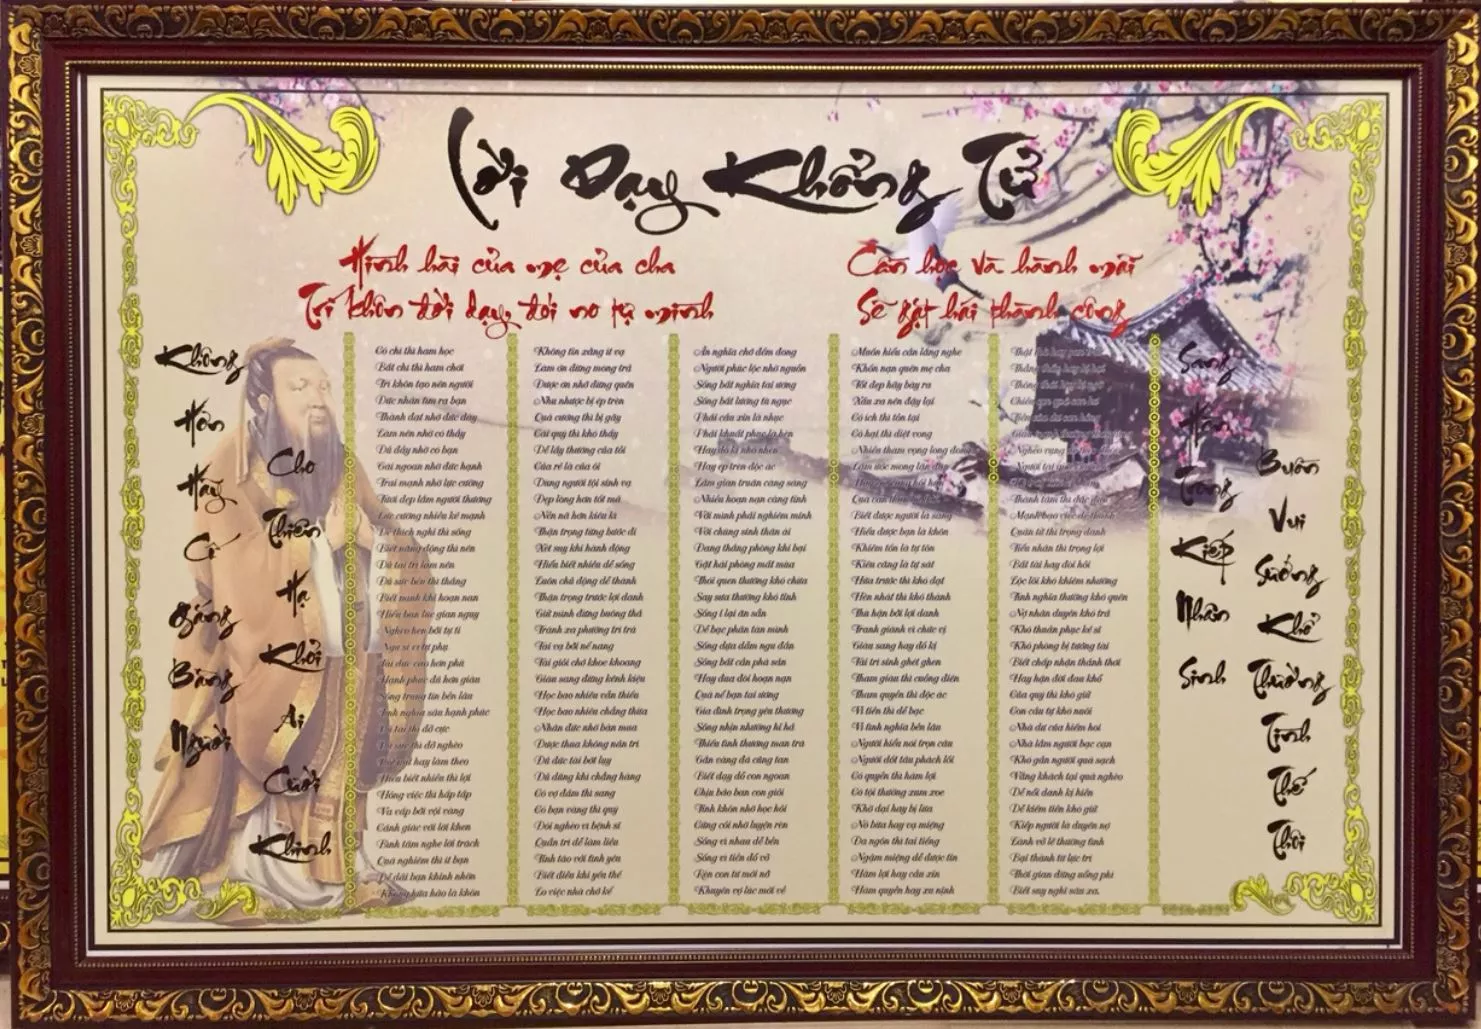 Lời Dạy Khổng Tử
Hình hài của mẹ của cha
Trí khôn đời dạy, đói no tự mình
Cần học và hành mãi
Sẽ gặt hái thành công
Không
Hơn
Hãy
Cố
gắng
Bằng
Người
Cho
Thiên
Hạ
Khỏi
Ai
Cười
Khinh
Có chí thì ham học
Bất chí thì ham chơi
Trí khôn tạo nên người
Đức nhân tìm ra bạn
Thành đạt nhờ đức dày
Làm nên nhờ có thầy
Đủ đầy nhờ có bạn
Gái ngoan nhờ đức hạnh
Trai mạnh nhờ lực cường
Tươi đẹp lắm người thương
Lực cường nhiều kẻ mạnh
Dễ thích nghi thì sống
Biết năng động thì nên
Đủ tài trí làm nên
Đủ sức bền thì thắng
Biết mình khi hoạn nạn
Hiểu bạn lúc gian nguy
Nghèo hèn bởi tự ti
Ngu si vì tự phụ
Tài đức cao hơn phú
Hạnh phúc đủ hơn giàu
Sống trung tín bền lâu
Tình nghĩa sâu hạnh phúc
Đủ tài thì đỡ cực
Đủ sức thì đỡ nghèo
Thờ ơi hay làm theo
Hiểu biết nhiều thì lợi
Hỏng việc thì hấp tấp
Va vấp bởi vội vàng
Cảnh giác với lời khen
Bình tâm nghe lời trách
Quá nghiêm thì ít bạn
Dễ dãi bạn khinh nhờn
Không hứa hão là khôn
Không tin xằng ít vạ
Làm ơn đừng mong trả
Được ơn nhớ đừng quên
Nhu nhược bị ép trên
Quá cương thì bị gãy
Cái quý thì khó thấy
Dễ lấy thường của tồi
Của rẻ là của ôi
Dùng người tồi sinh vạ
Đẹp lòng hơn tốt mã
Nền nã hơn kiêu kì
Thận trọng từng bước đi
Xét suy khi hành động
Hiểu biết nhiều dễ sống
Luôn chủ động dễ thành
Thận trọng trước lợi danh
Giữ mình đừng buông thả
Tránh xa phường trí trá
Tai vạ bởi nể nang
Tài giỏi chớ khoe khoang
Giàn sang đừng kênh kiệu
Học bao nhiêu vẫn thiếu
Học bao nhiêu chẳng thừa
Nhân đức nhớ bán mua
Được thua không nản trí
Đủ đức tài bớt lụy
Đủ dũng khí chẳng hàng
Có vợ đảm thì sang
Có bạn vàng thì quý
Đói nghèo vì bệnh sĩ
Quẫn trí dễ làm liều
Tỉnh táo với tình yêu
Biết điều khi yếu thế
Lo việc nhà chớ kể
Ân nghĩa chớ đếm đong
Người phúc lộc nhờ nguồn
Sống bất nghĩa tai ương
Sống bất lương tù ngục
Phải cầu xin là nhục
Phải khuất phục là hèn
Hay đố là nhỏ nhen
Hay ép trên độc ác
Lâm gian truân càng sáng
Nhiều hoạn nạn càng tinh
Với mình phải nghiêm minh
Với chúng sinh thân ái
Đang thắng phòng khi bại
Gặt hái phòng mất mùa
Thói quen thường khó chừa
Say sưa thường khó tỉnh
Sống ỉ lại ăn sẵn
Dễ bạc phận tàn mình
Sống dựa dẫm ngu đần
Sống bất cần phá sản
Hay đua đòi hoạn nạn
Quá nể bạn tai ương
Gia đình trọng yêu thương
Sống nhịn nhường hỉ hả
Thiếu tình thương man trá
Gắn vàng đá cũng tan
Biết dạy dỗ con ngoan
Chịu bảo ban con giỏi
Tinh khôn nhờ học hỏi
Cứng cỏi nhờ luyện rèn
Sống vì nhau dễ bền
Sống vì tiền đổ vỡ
Rèn con từ mới nở
Khuyên vợ lúc mới về
Muốn hiểu cần lắng nghe
Khốn nạn quên mẹ cha
Tốt đẹp hãy bày ra
Xấu xa nên đậy lại
Có ích thì tồn tại
Có hại thì diệt vong
Nhiều tham vọng long đong
Lắm ước mong lận đận
Biết được người là sáng
Hiểu được bạn là khôn
Khiêm tốn là tự tôn
Kiêu căng là tự sát
Hứa trước thì khó đạt
Hèn nhát thì khó thành
Thù hận bởi lợi danh
Tranh giành vì chức vị
Giàu sang hay đố kị
Tài trí sinh ghét ghen
Tham giàu thì cuồng điên
Tham quyền thì độc ác
Vì tiền thì dễ bạc
Vì tình nghĩa bền lâu
Người hiểu nói trọn câu
Người dốt tâu phách lối
Có quyền thì hám lợi
Có tội thường xum xoe
Khờ dại hay bị lừa
Nó bừa hay vạ miệng
Đa ngôn thì tai tiếng
Ngậm miệng dễ được tin
Hám lợi hay cầu xin
Ham quyền hay xu nịnh
Thật thà hay
Thẳng thấy hay bị hại
Thông thái hay bị ngờ
Nghèo vụng
Người tài
Thành tâm thì đắc đạo
Mạnh bạo việc dễ thành
Quân tử thì trọng danh
Tiểu nhân thì trọng lợi
Bất tài hay đòi hỏi
Lọc lõi khó khiêm nhường
Tình nghĩa thường khó quên
Nợ nhân duyên khó trả
Khó thuần phục kẻ sĩ
Khó phòng bị tướng tài
Biết chấp nhận thảnh thơi
Hay hận đời đau khổ
Của quý thì khó giữ
Con cầu tự khó nuôi
Nhà dư của hiếm hoi
Nhà lắm người bạc cạn
Khó gần người quá sạch
Vắng khách tại quá nghèo
Dễ nổi danh kị hiền
Dễ kiếm tiền khó giữ
Kiếp người là duyên nợ
Lành vỡ lẽ thường tình
Bại thành từ lực trí
Thời gian đừng uổng phí
Biết suy nghĩ sâu xa.
Sang
Hèn
Trong
Kiếp
Nhân
Sinh
Buồn
Vui
Sướng
Khổ
Thường
Tình
Thế
Thôi